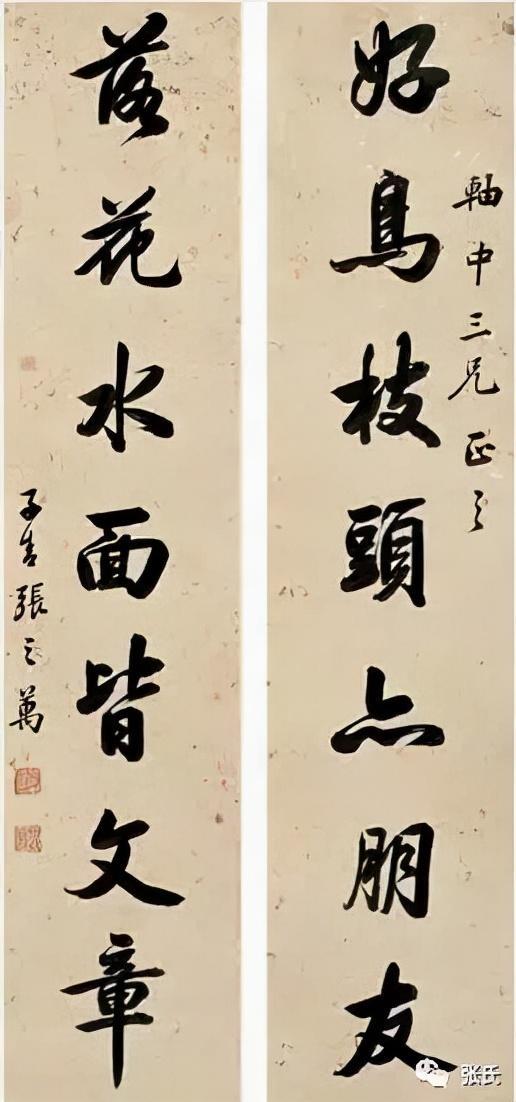 好鳥枝頭亦朋友
軸中三兄正之
落花水面皆文章
子青張之萬
张氏